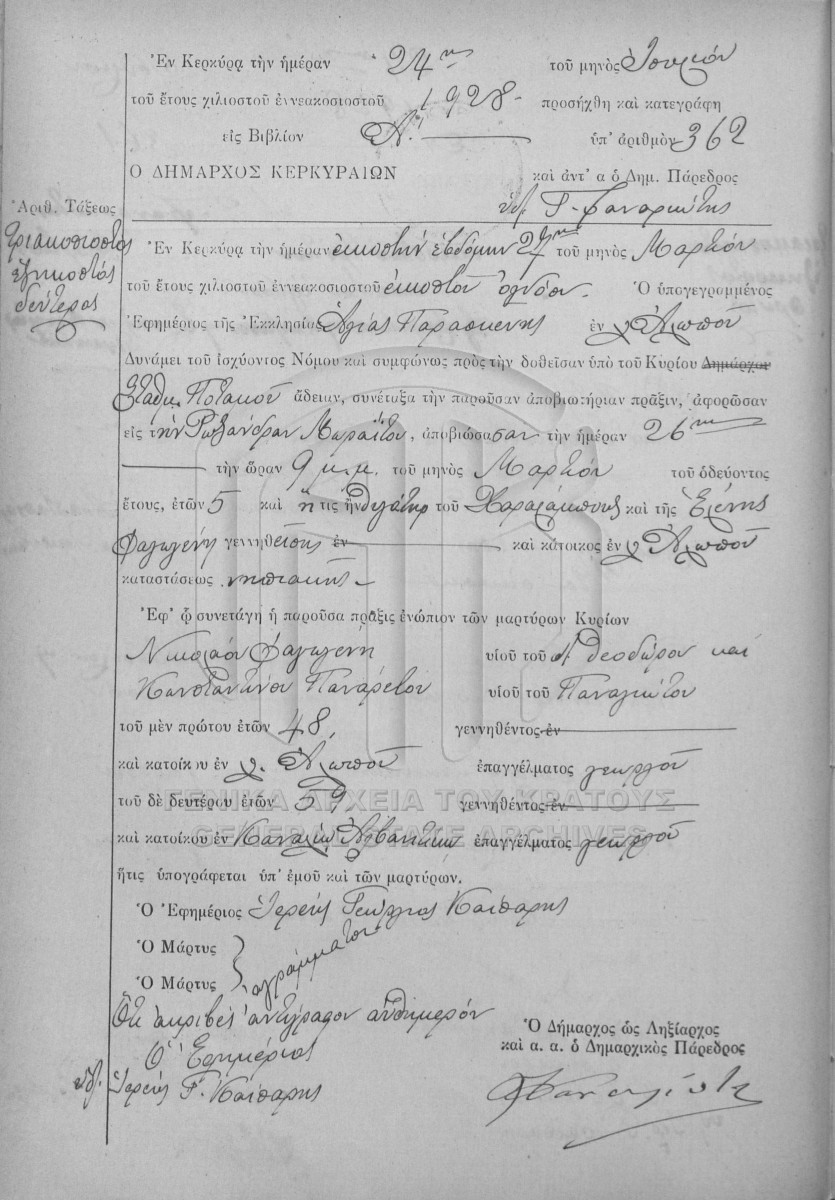 Ἐν Κερκύρᾳ τὴν ἡμέραν 24ην τοῦ μηνὸς Ἰουνίου
τοῦ ἔτους χιλιοστοῦ ἐννεακοσιοστοῦ 1928 προσήχθη καὶ κατεγράφη
εἰς Βιβλίον Α΄ ὑπ' ἀριθμὸν 362
Ο ΔΗΜΑΡΧΟΣ ΚΕΡΚΥΡΑΙΩΝ καὶ ἀντ' α ὁ Δημ. Πάρεδρος
Γ. Φαναριώτης
Ἀριθ. Τάξεως
Τριακοσιοστὸς
ἑξηκοστὸς
δεύτερος
Ἐν Κερκύρᾳ τὴν ἡμέραν εἰκοστὴν ἑβδόμην 27ην τοῦ μηνὸς Μαρτίου
τοῦ ἔτους χιλιοστοῦ ἐννεακοσιοστοῦ εἰκοστοῦ ὀγδόου. Ὁ ὑπογεγραμμένος
Ἐφημέριος τῆς Ἐκκλησίας Ἁγίας Παρασκευῆς ἐν χ. Ἀλωποῦ
Δυνάμει τοῦ ἰσχύοντος Νόμου καὶ συμφώνως πρὸς τὴν δοθεῖσαν ὑπὸ τοῦ Κυρίου Δημάρχου
Σταθμ. Ποταμοῦ ἄδειαν, συνέταξα τὴν παροῦσαν ἀποβιωτήριαν πρᾶξιν, ἀφορῶσαν
εἰς τὴν Ρωξάνδραν Μαραΐτου, ἀποβιώσασαν τὴν ἡμέραν 26ην
τὴν ὥραν 9 μ.μ. τοῦ μηνὸς Μαρτίου τοῦ ὁδεύοντος
ἔτους, ἐτῶν 5 καὶ ἥτις ἦν θυγάτηρ τοῦ Χαραλάμπους καὶ τῆς Ἑλένης
Φαγογένη γεννηθείσης ἐν καὶ κάτοικος ἐν χ. Ἀλωποῦ
καταστάσεως νηπιακῆς
Ἐφ' ᾧ συνετάγη ἡ παροῦσα πρᾶξις ἐνώπιον τῶν μαρτύρων Κυρίων
Νικολάου Φαγογένη υἱοῦ τοῦ Θεοδώρου καὶ
Κωνσταντίνου Παναρέτου υἱοῦ τοῦ Παναγιώτου
τοῦ μὲν πρώτου ἐτῶν 48, γεννηθέντος ἐν
καὶ κατοίκου ἐν χ. Ἀλωποῦ ἐπαγγέλματος γεωργοῦ
τοῦ δὲ δευτέρου ἐτῶν 59 γεννηθέντος ἐν
ΓΕΝΙΚΑ ΑΡΧΕΙΑ ΤΟΥ ΚΡΑΤΟΥΣ
GENERAL STATE ARCHIVES
καὶ κατοίκου ἐν ἐπαγγέλματος γεωργοῦ
ἥτις ὑπογράφεται ὑπ' ἐμοῦ καὶ τῶν μαρτύρων.
Ὁ Ἐφημέριος Ἱερεὺς Γεώργιος Κάσαρης
Ὁ Μάρτυς
Ὁ Μάρτυς
ἀγράμματοι
Ὅτι ἀκριβὲς ἀντίγραφον αὐθημερόν
Ὁ Ἐφημέριος
Ἱερεὺς Γ. Κάσαρης
Ὁ Δήμαρχος ὡς Ληξίαρχος
καὶ α. α. ὁ Δημαρχικὸς Πάρεδρος